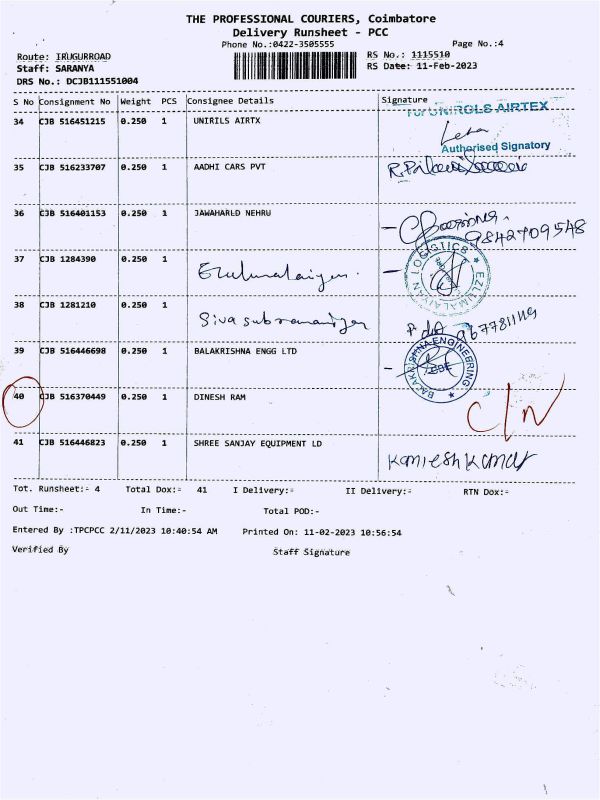 THE PROFESSIONAL COURIERS, Coimbatore
Delivery Runsheet - PCC
Phone No.:0422-3505555 Page No.:4
Route: IRUGURROAD RS No.: 1115510
Staff: SARANYA RS Date: 11-Feb-2023
DRS No.: DCJB111551004
S No Consignment No Weight PCS Consignee Details Signature
For UNIROLS AIRTEX
34 CJB 516451215 0.250 1 UNIRILS AIRTX
Authorised Signatory
35 CJB 516233707 0.250 1 AADHI CARS PVT
36 CJB 516401153 0.250 1 JAWAHARLD NEHRU
9842709548
37 CJB 1284390 0.250 1 Ezulumalaiyan
EZLUMALAIYAN LOGISTICS
38 CJB 1281210 0.250 1 Sivasubramaniyan
39 CJB 516446698 0.250 1 BALAKRISHNA ENGG LTD
BALAKRISHNA ENGINEERING
40 CJB 516370449 0.250 1 DINESH RAM C/N
41 CJB 516446823 0.250 1 SHREE SANJAY EQUIPMENT LD
Kamleshkumar
Tot. Runsheet:- 4 Total Dox:- 41 I Delivery:- II Delivery:- RTN Dox:-
Out Time:- In Time:- Total POD:-
Entered By :TPCPCC 2/11/2023 10:40:54 AM Printed On: 11-02-2023 10:56:54
Verified By Staff Signature